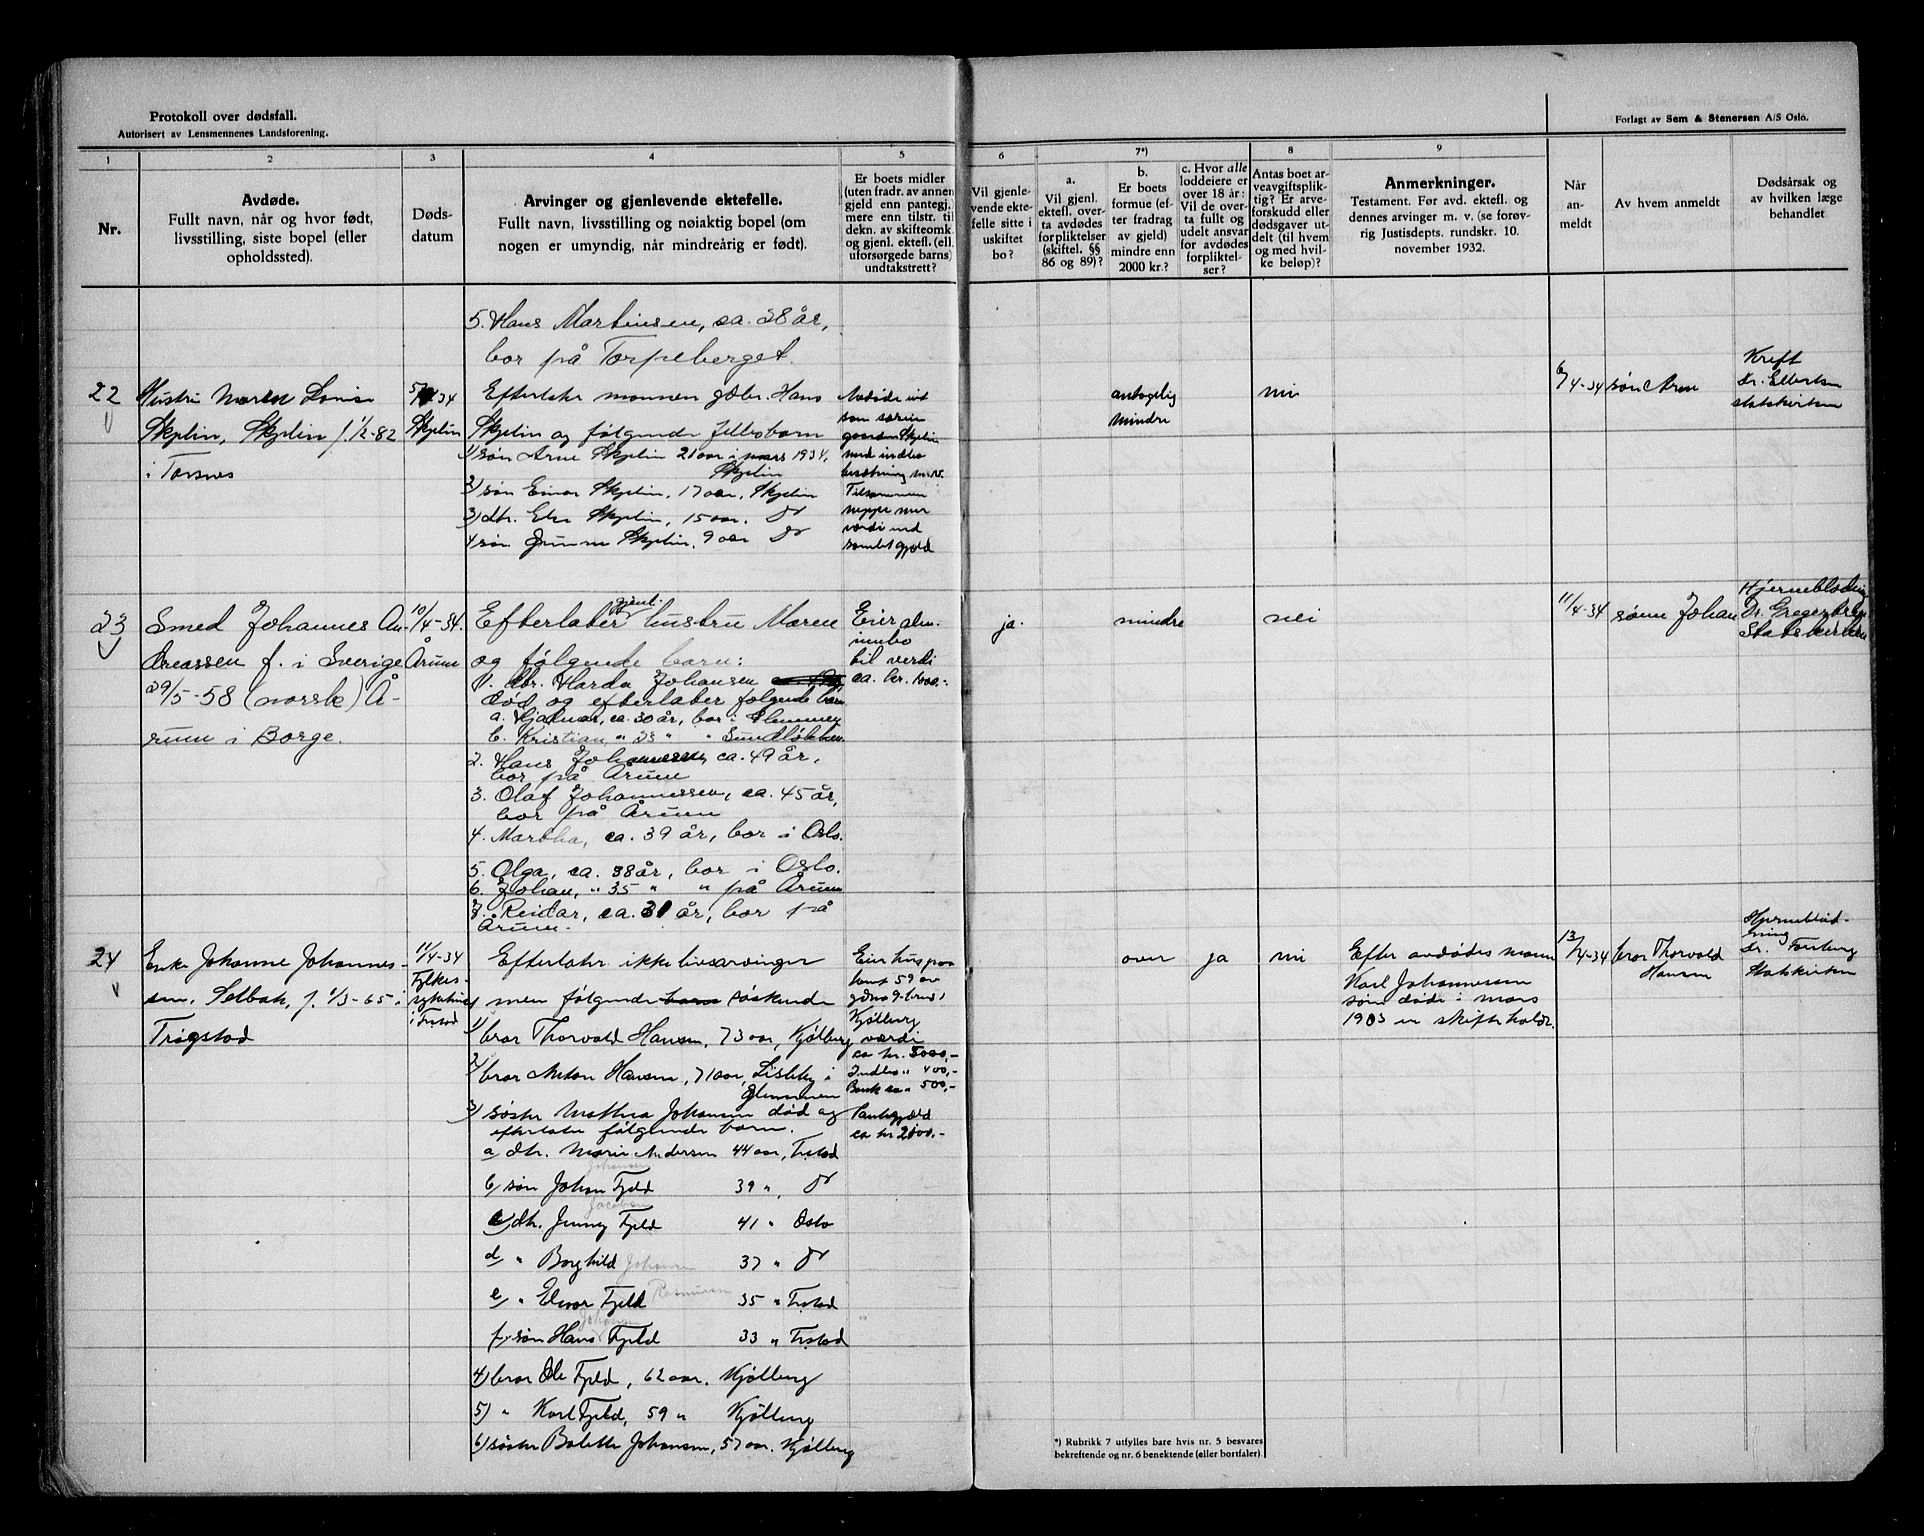 Protokoll over dødsfall.
Autorisert av Lensmennenes Landsforening.
Forlagt av Sem & Stenersen A/S Oslo.
1
2
3
4
5
6
7*)
8
9
Nr.
Avdøde.
Fullt navn, når og hvor født,
livsstilling, siste bopel (eller
opholdssted).
Døds-
datum
Arvinger og gjenlevende ektefelle.
Fullt navn, livsstilling og nøiaktig bopel (om
nogen er umyndig, når mindreårig er født).
Er boets midler
(uten fradr. av annen
gjeld enn pantegj.)
mere enn tilstr. til
dekn. av skifteomk.
og gjenl. ektefl. (ell.
uforsørgede barns)
undtakstrett?
Vil gjenle-
vende ekte-
felle sitte i
uskiftet
bo?
a.
Vil gjenl.
ektefl. over-
ta avdødes
forpliktelser
(skiftel. §§
86 og 89)?
b.
Er boets
formue (ef-
ter fradrag
av gjeld)
mindre enn
2000 kr.?
c. Hvor alle
loddeiere er
over 18 år:
Vil de over-
ta fullt og
udelt ansvar
for avdødes
forpliktel-
ser?
Antas boet ar-
veavgiftsplik-
tig? Er arve-
forskudd eller
dødsgaver ut-
delt (til hvem
og med hvil-
ke beløp)?
Anmerkninger.
Testament. Før avd. ektefl. og
dennes arvinger m. v. (se forøv-
rig Justisdepts. rundskr. 10.
november 1932.
Når
an-
meldt
Av hvem anmeldt
Dødsårsak og
av hvilken læge
behandlet
5. Hans Martinsen, ca. 38 år,
bor på Torpeberget.
22
Hustru Maren Lovise
Skjelin, Skjelin f. 1/2-82
i Torsnes
5/4 34
Skjelin
Efterlater mannen gdbr. Hans
Skjelin og følgende fellesbarn
1) søn Arne Skjelin 21 aar i mars 1934,
Skjelin
2) søn Einar Skjelin, 17 aar, Skjelin
3) dtr. Else Skjelin, 15 aar. do
4 søn Gunnar Skjelin, 9 aar do
Avdøde eit
som særeie
gaarden Skjelin
med indbo
besetning m.v.
Tilsammen
neppe mer
værdi end
samlet gjæld
antagelig
mindre
nei
6/4-34
søn Arne
Kreft
Dr. Ellertsen
statskirken
23
Smed Johannes An-
dreassen f. i Sverige
29/5-58 (norsk) Å-
rum i Borge.
10/4-34.
Årum
Efterlater gjenl. hustru Maren
og følgende barn:
1. dtr. Harda Johansen
død og efterlater følgende barn
a. Hjalmar, ca. 30 år, bor i Glemmen
b. Kristian, " 33 " " Sundløkken
2. Hans Johannessen ca. 49 år,
bor på Årum
3. Olaf Johannessen, ca. 45 år,
bor på Årum
4. Martha, ca. 39 år, bor i Oslo.
5. Olga, ca. 38 år, bor i Oslo.
6. Johan, " 35 " " på Årum
7. Reidar, ca. 31 år, bor på
Årum.
Eier alm.
innbo
til verdi
ca. kr. 1000.-
ja.
mindre
nei
11/4-34
sønn Johan
Hjerneblødning
Dr. Gregersen
Statskirken
24
Enke Johanne Johannes-
sen, Selbak, f. 1/3-65 i
Trøgstad
11/4-34
Fylkes-
sykehuset
i Fr.stad
Efterlater ikke livsarvinger
men følgende barn søskende
1) bror Thorvald Hansen, 73 aar, Kjølberg
2) bror Anton Hansen, 71 aar, Lisleby i
Glemmen
3) søster Mathea Johansen død og
efterlater følgende barn.
a dtr. Marie Andersen 44 aar, Fr.stad
Johansen
b) søn Johan Fjeld 39 ", do
Jacobsen
c) dtr. Jenny Fjeld 41 " Oslo
d " Borghild Johansen 37 " do
e " Elvor Fjeld Rasmussen 35 " Fr.stad
Johansen
f. søn Hans Fjeld 33 " Fr.stad
4) bror Ole Fjeld, 62 aar. Kjølberg
5) " Karl Fjeld, 59 " Kjølberg
6) søster Bolette Johansen, 57 aar. Kjølberg
Eier hus paa
tomt 59 av
gdno 9. brno 1
Kjølberg
værdi
ca kr. 5000,-
Indbo " 400,-
Bank ca " 500,-
Pantegjæld
ca kr 2000.-
over
ja
nei
Efter avdødes mann
Karl Johannessen
som døde i mars
1903 er skifte holdt.
13/4-34
bror Thorvald
Hansen
Hjerneblød-
ning
dr. Forberg
Statskirken
*) Rubrikk 7 utfylles bare hvis nr. 5 besvares
bekreftende og nr. 6 benektende (eller bortfaler).